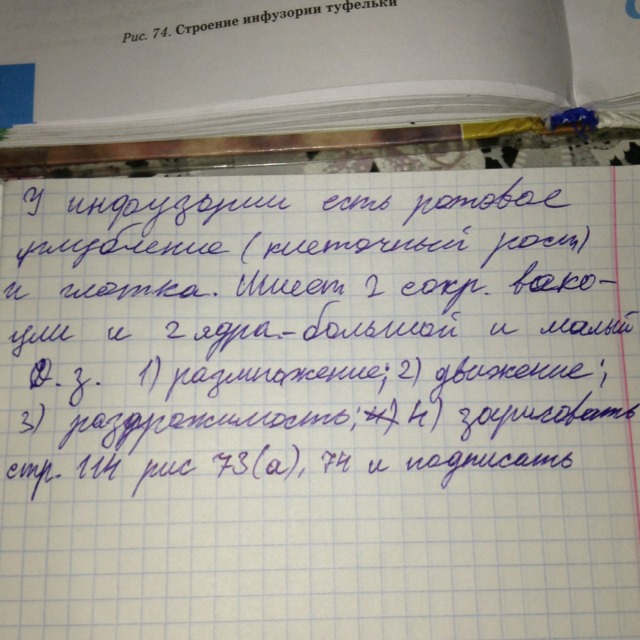 Рис. 74. Строение инфузории туфельки
У инфузории есть ротовое
углубление (клеточный рот)
и глотка. Имеет 2 сокр. вако-
ули и 2 ядра.-большой и малый
Д. з. 1) размножение; 2) движение;
3) раздражимость; 4) зарисовать
стр. 114 рис 73(а), 74 и подписать